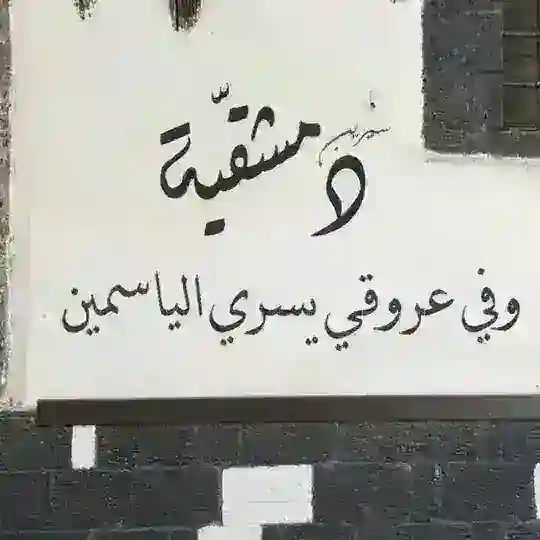 دمشقيّة
وفي عروقي يسري الياسمين